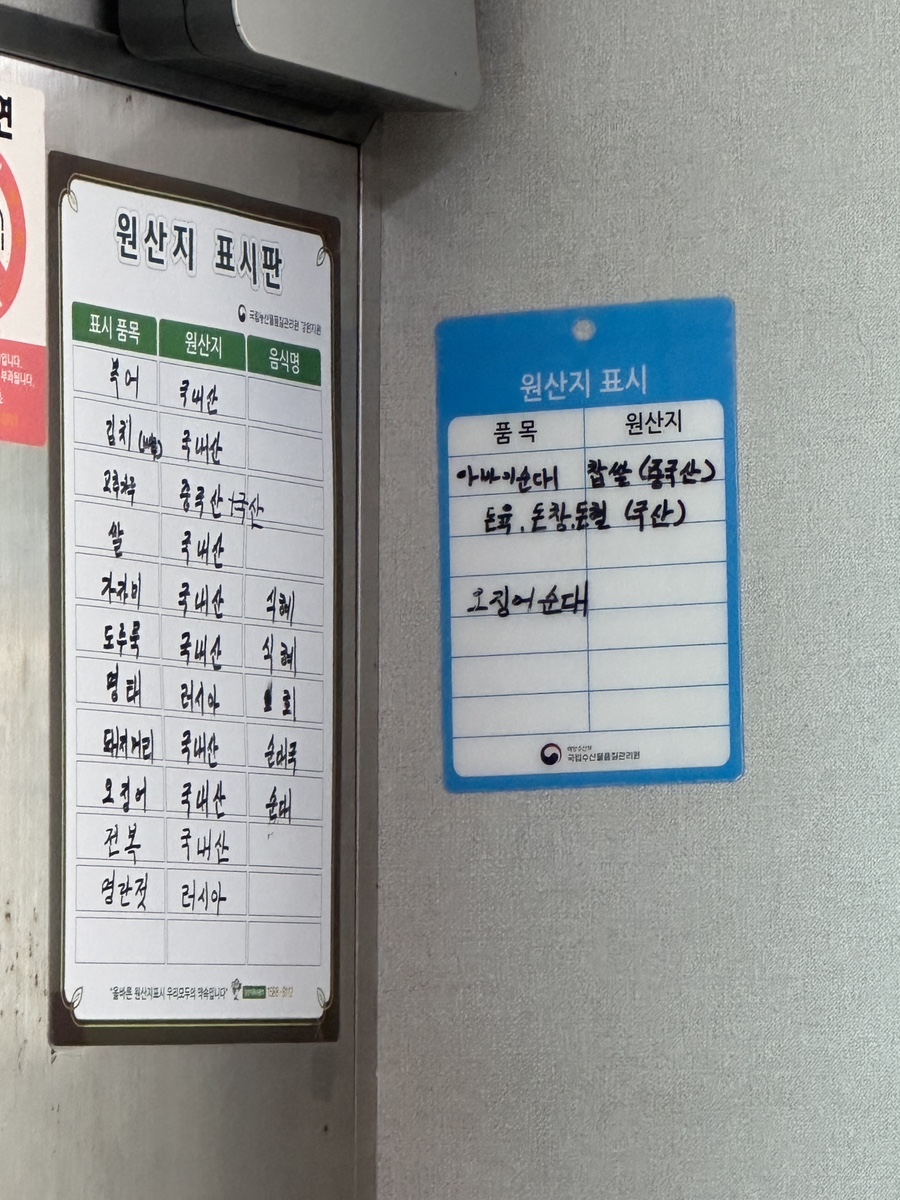 연
입니다.
부과됩니다.
원산지 표시판
국립농산물품질관리원 강원지원
표시 품목 원산지 음식명
북어 국내산
김치 국내산
고춧가루 중국산+국산
쌀 국내산
가자미 국내산 식혜
도루묵 국내산 식혜
명태 러시아 회
돼지머리 국내산 순대국
오징어 국내산 순대
전복 국내산
명란젓 러시아
"올바른 원산지표시 우리모두의 약속입니다" 1588-8112
원산지 표시
품목 원산지
아바이순대 찹쌀 (중국산)
돈육, 돈창, 돈혈 (국산)
오징어순대
해양수산부
국립수산물품질관리원